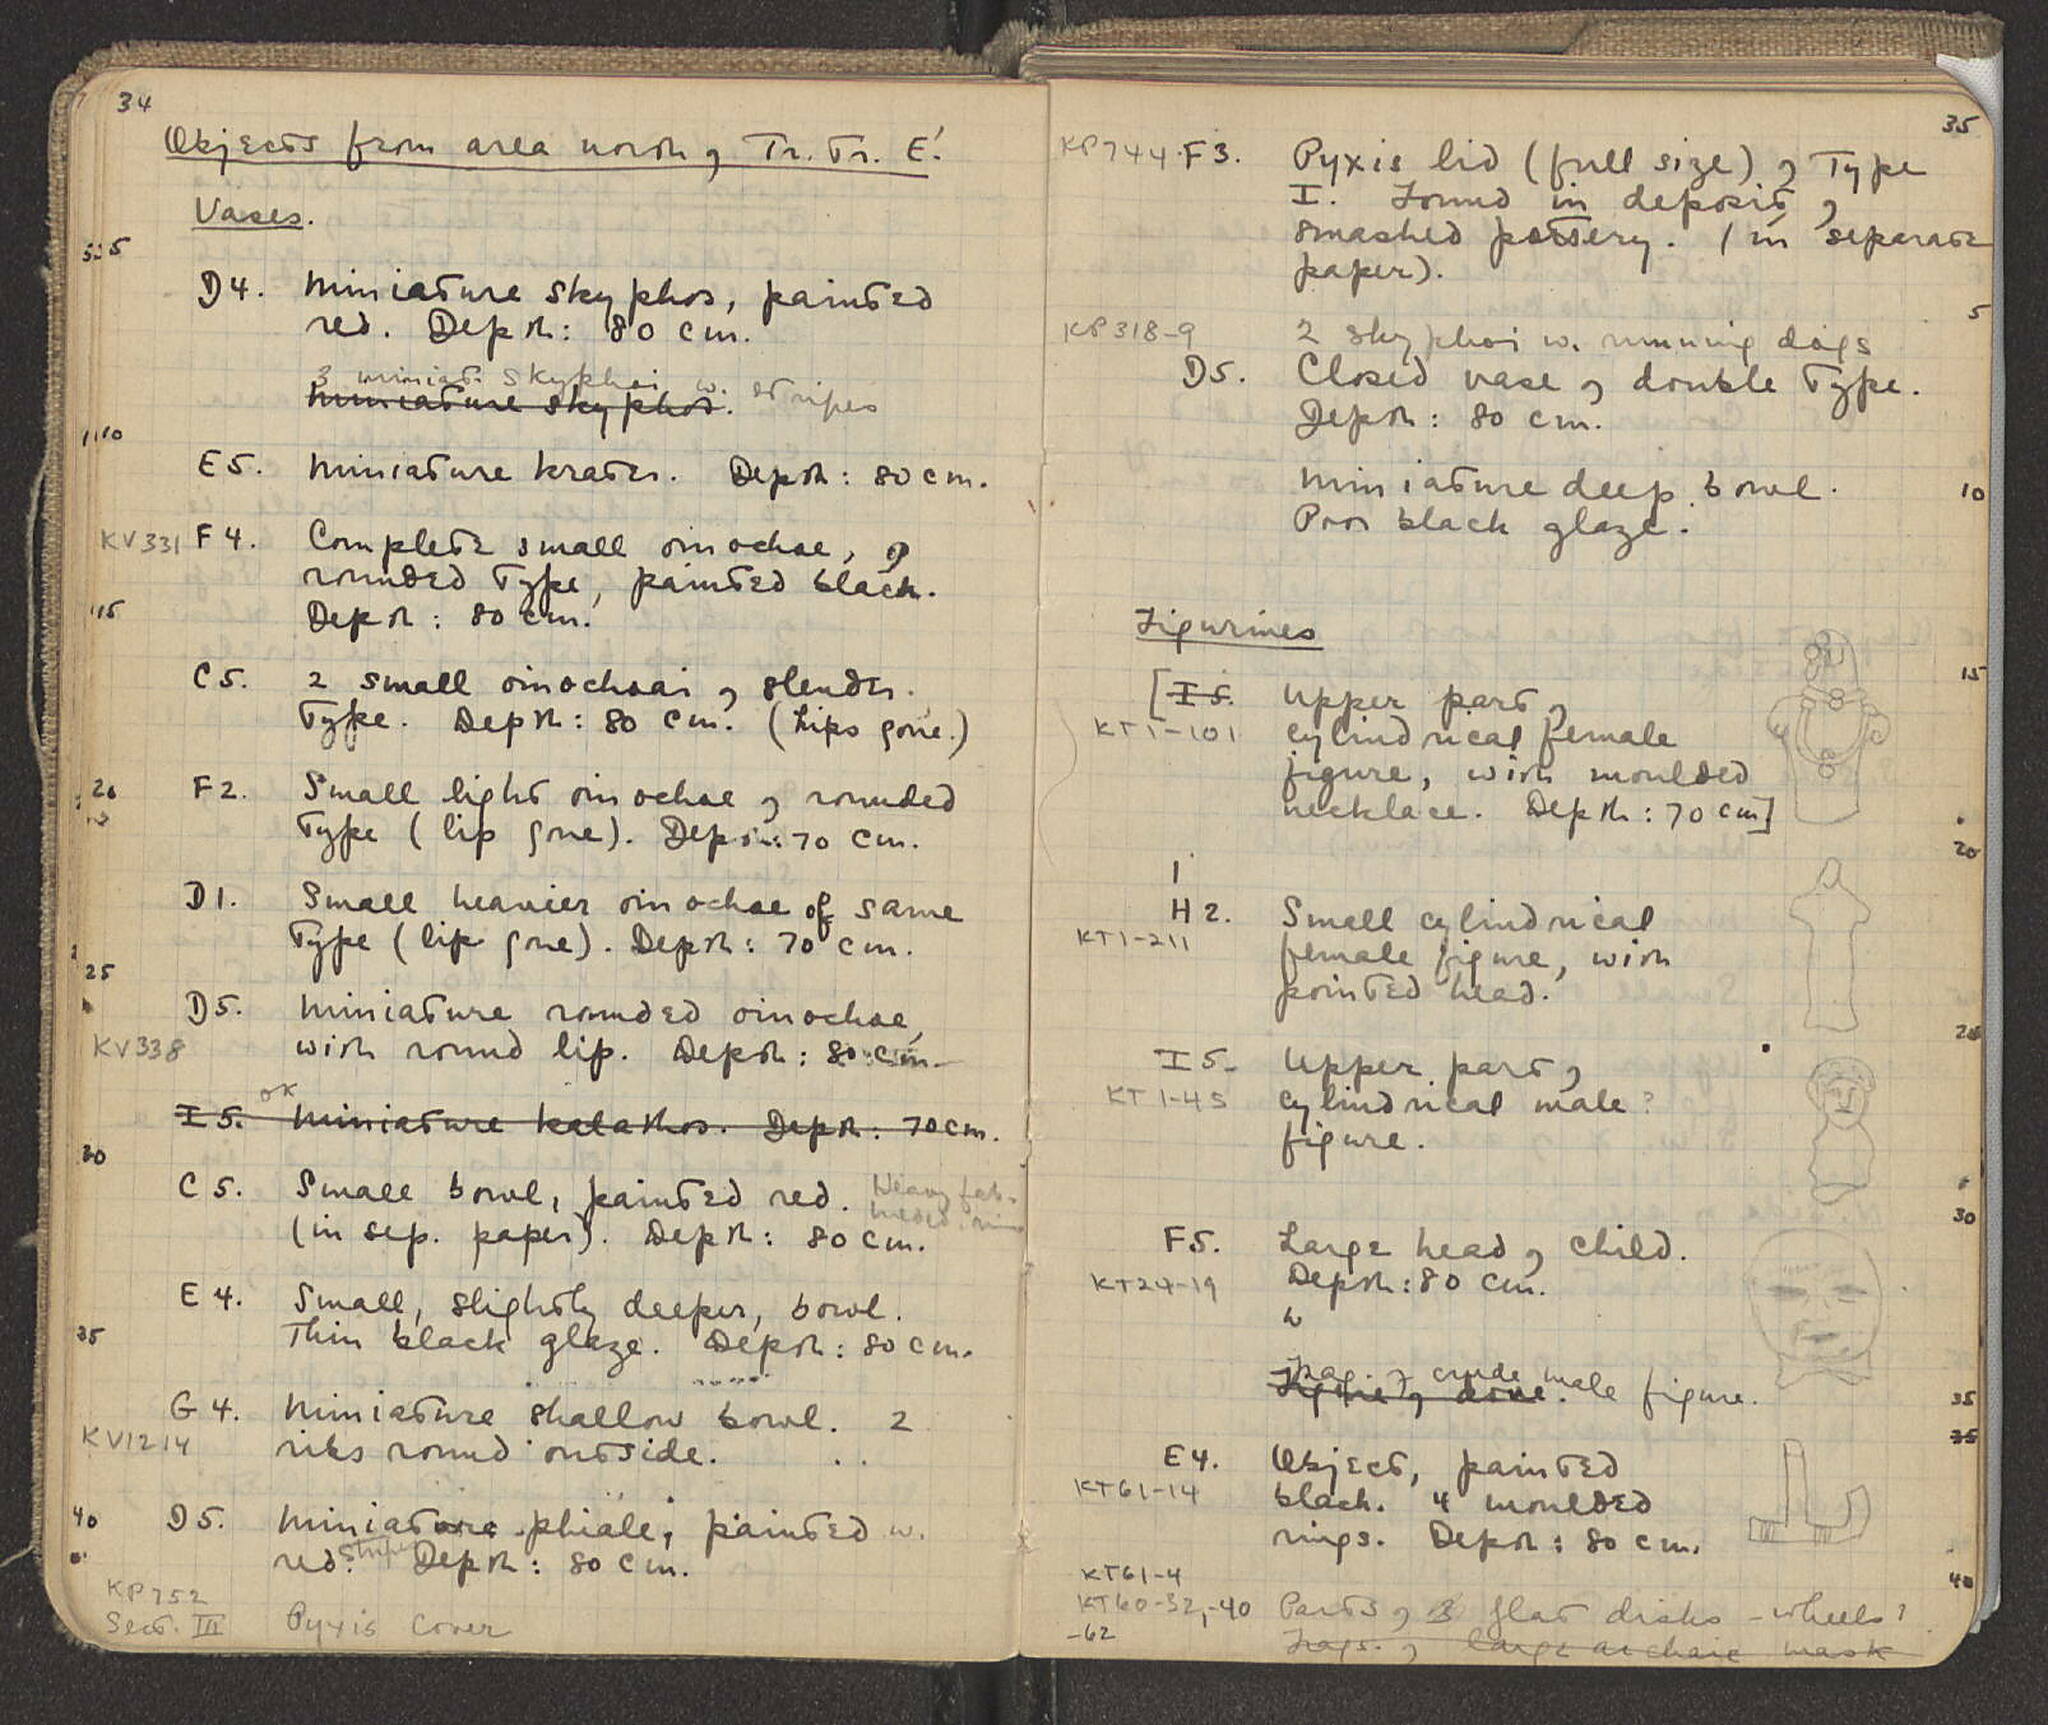 34
Objects from area north of Tr. Tr. E'.
Vases.
5
D4. Miniature skyphos, painted
red. Depth: 80 cm.
3 miniat. skyphoi w. stripes
Miniature skyphos.
10
E5. Miniature krater. Depth: 80 cm.
KV331 F4. Complete small oinochoe, of
rounded type, painted black.
15
Depth: 80 cm.
C5. 2 small oinochoai of slender
type. Depth: 80 cm. (Lips gone.)
20
F2. Small light oinochoe of rounded
type (lip gone). Depth: 70 cm.
D1. Small heavier oinochoe of same
type (lip gone). Depth: 70 cm.
25
D5. Miniature rounded oinochoe,
KV338 with round lip. Depth: 80 cm.
OK
I5. Miniature kalathos. Depth: 70 cm.
30
C5. Small bowl, painted red. Heavy fab.
(in sep. paper). Depth: 80 cm.
E4. Small, slightly deeper, bowl.
35
Thin black glaze. Depth: 80 cm.
G4. Miniature shallow bowl. 2
KV1214 ribs round outside.
40
D5. Miniature phiale, painted w.
red. stripes Depth: 80 cm.
KP752
Sect. III Pyxis cover
35
KP744 F3. Pyxis lid (full size) of Type
I. Found in deposit of
smashed pottery. (in separate
paper).
5
KP318-9 2 skyphoi w. running dogs
D5. Closed vase of double type.
Depth: 80 cm.
Miniature deep bowl. 10
Poor black glaze.
Figurines
15
[I5. Upper part of
KT1-101 cylindrical female
figure, with moulded
necklace. Depth: 70 cm]
20
I
H2. Small cylindrical
KT1-211 female figure, with
pointed head.
25
I5. Upper part of
KT1-45 cylindrical male?
figure.
30
F5. Large head of child.
KT24-19 Depth: 80 cm.
Frag. of crude male figure.
Figure of dove.
35
35
E4. Object, painted
KT61-14 black. 4 moulded
rings. Depth: 80 cm.
KT61-4
40
KT60-32,-40 Parts of 3 flat disks - wheels?
-62
Frags. of large archaic mask